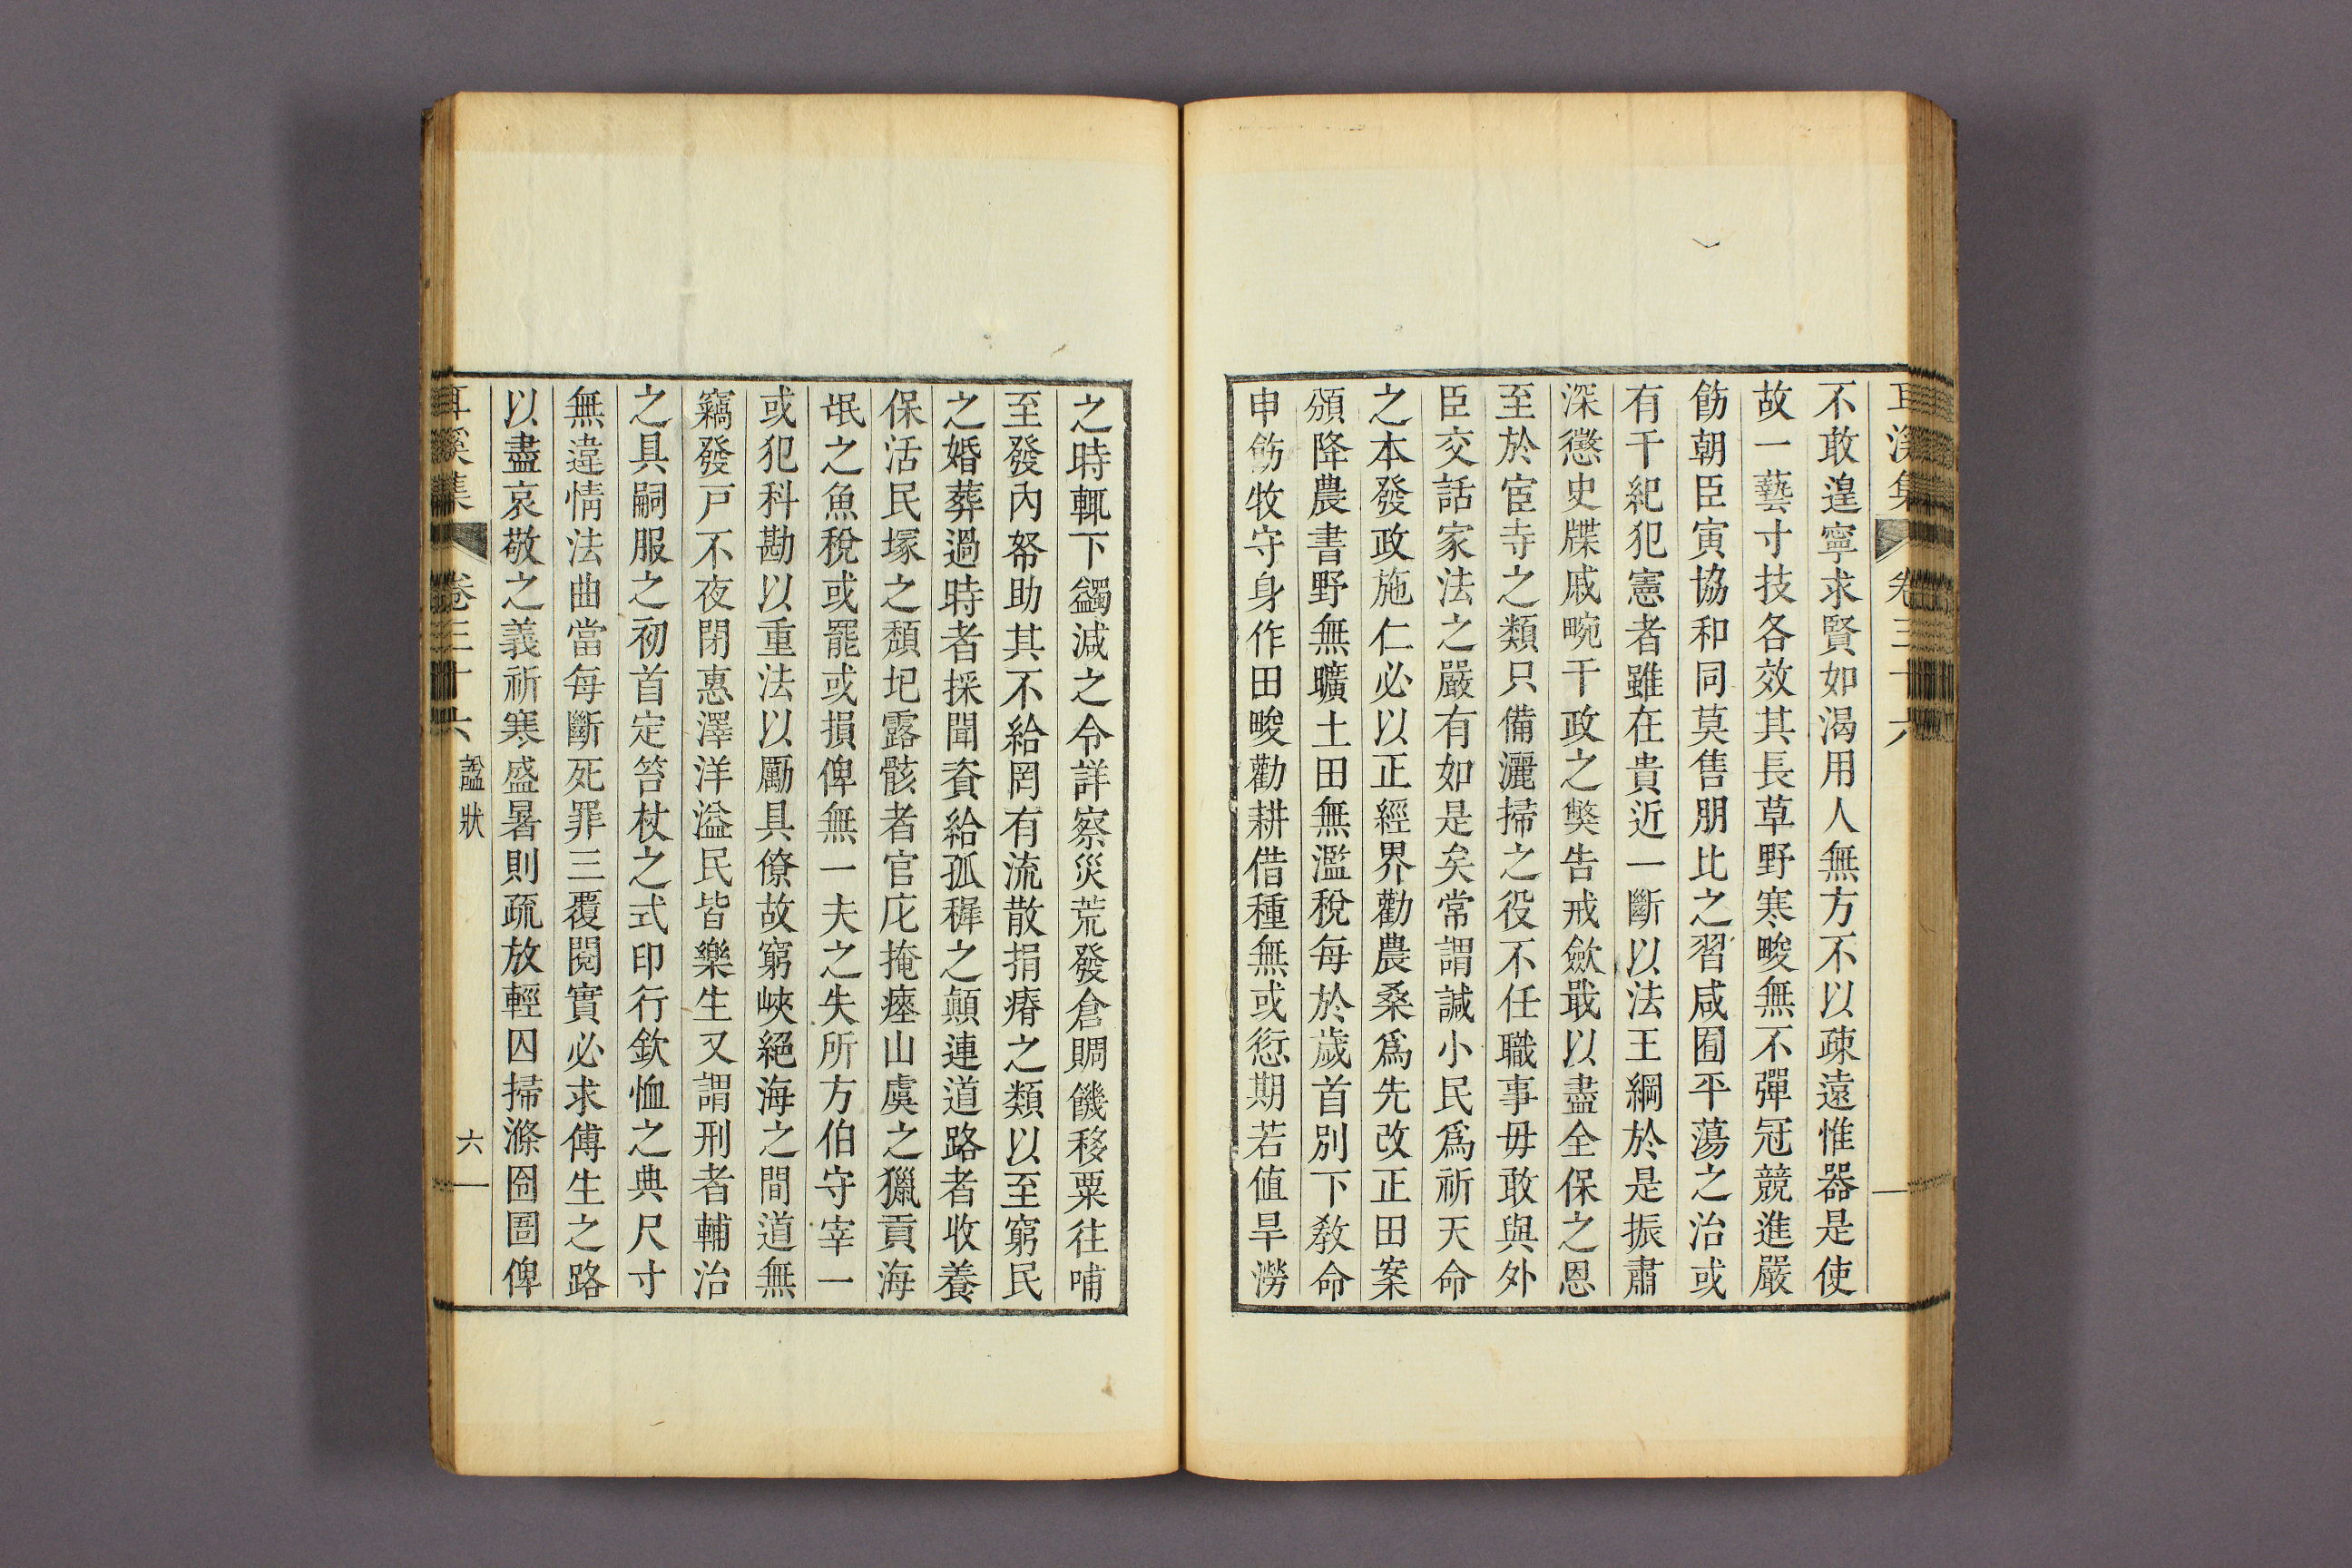 耳溪集 卷三十六
不敢遑寧求賢如渴用人無方不以疎遠惟器是使
故一藝寸技各效其長草野寒畯無不彈冠競進嚴
飭朝臣寅協和同莫售朋比之習咸囿平蕩之治或
有干紀犯憲者雖在貴近一斷以法王綱於是振肅
深懲史牒戚畹干政之弊告戒歛戢以盡全保之恩
至於宦寺之類只備灑掃之役不任職事毋敢與外
臣交話家法之嚴有如是矣常謂諴小民爲祈天命
之本發政施仁必以正經界勸農桑爲先改正田案
頒降農書野無曠土田無濫稅每於歲首別下敎命
申飭牧守身作田畯勸耕借種無或愆期若値旱澇
之時輒下蠲減之令詳察災荒發倉賙饑移粟往哺
至發內帑助其不給罔有流散捐瘠之類以至窮民
之婚葬過時者採聞資給孤穉之顚連道路者收養
保活民塚之頹圮露骸者官庀掩瘞山虞之獵貢海
氓之魚稅或罷或損俾無一夫之失所方伯守宰一
或犯科勘以重法以勵具僚故窮峽絕海之間道無
竊發戶不夜閉惠澤洋溢民皆樂生又謂刑者輔治
之具嗣服之初首定笞杖之式印行欽恤之典尺寸
無違情法曲當每斷死罪三覆閱實必求傅生之路
以盡哀敬之義祈寒盛暑則疏放輕囚掃滌囹圄俾
耳溪集 卷三十六 諡狀 六